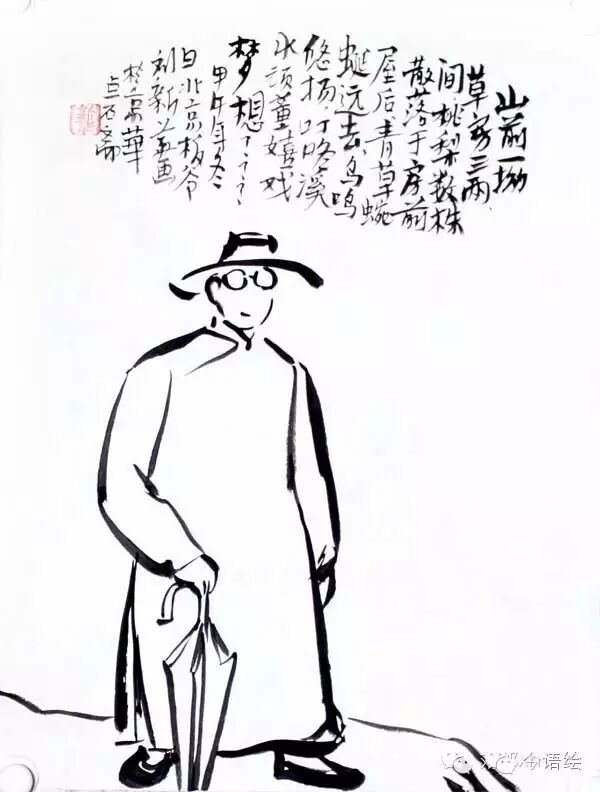 山前一坳
草房三两
间桃梨数株
散落于房前
屋后青草蜿
蜒远去鸟鸣
悠扬叮咚溪
水顽童嬉戏
梦想
甲午年冬
日北京板爷
刘新 画
京華
语绘